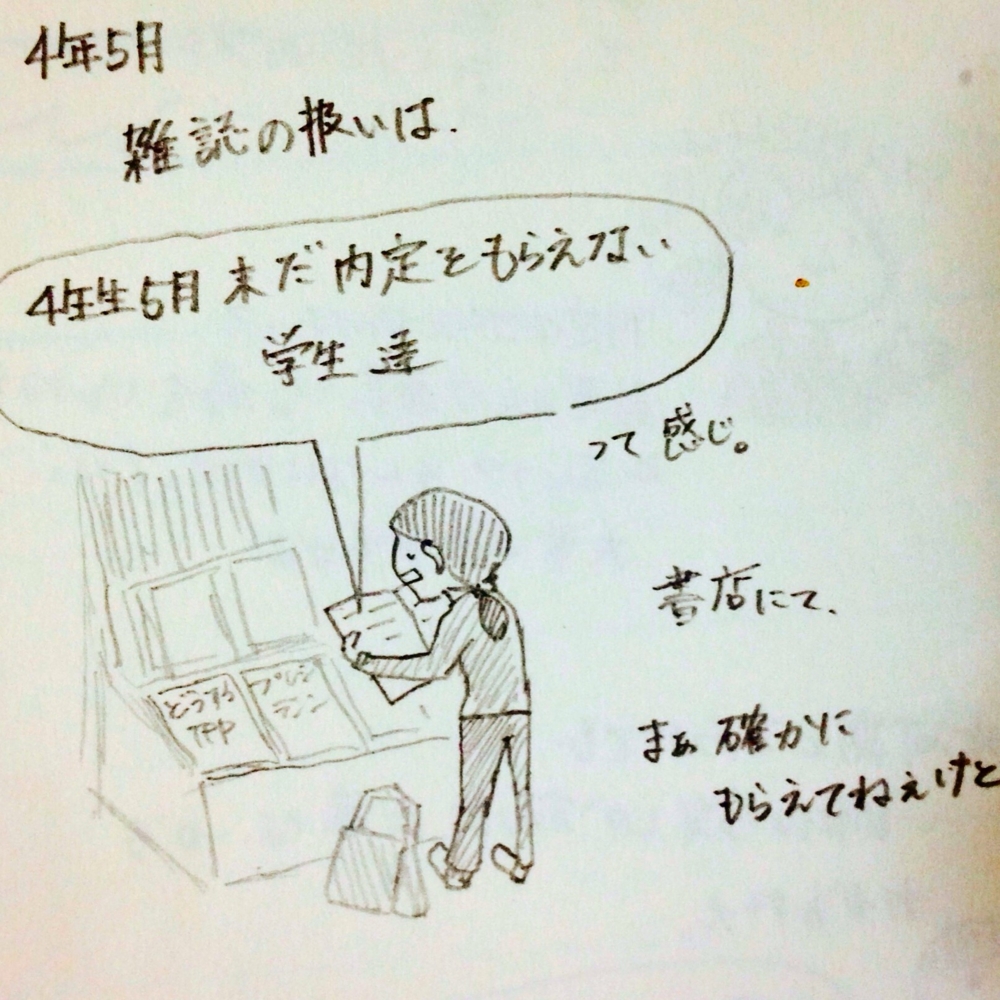 4年5月
雑誌の扱いは.
4年生5月 未だ内定をもらえない
学生達
って感じ。
書店にて.
まぁ確かに
もらえてねぇけど
どうする
TPP
プレジ
デン